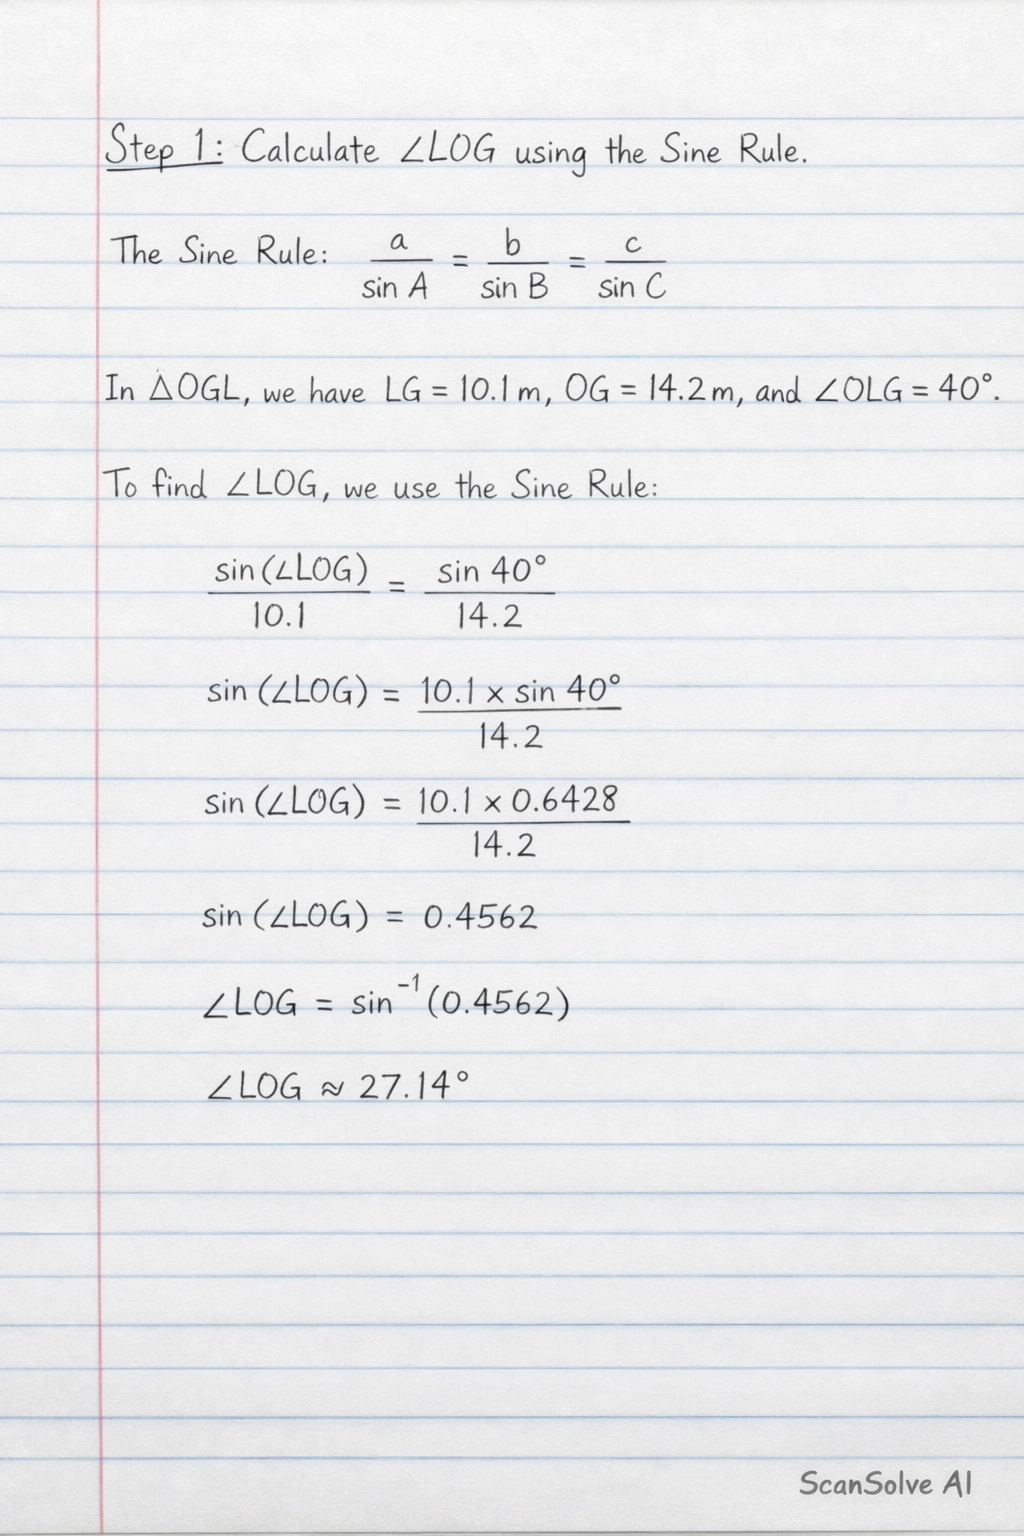 Step 1: Calculate ∠LOG using the Sine Rule.
The Sine Rule: a/sin A = b/sin B = c/sin C
In △OGL, we have LG = 10.1 m, OG = 14.2 m, and ∠OLG = 40°.
To find ∠LOG, we use the Sine Rule:
sin (∠LOG)/10.1 = sin 40°/14.2
sin (∠LOG) = 10.1 x sin 40°/14.2
sin (∠LOG) = 10.1 x 0.6428/14.2
sin (∠LOG) = 0.4562
∠LOG = sin⁻¹(0.4562)
∠LOG ≈ 27.14°
ScanSolve AI